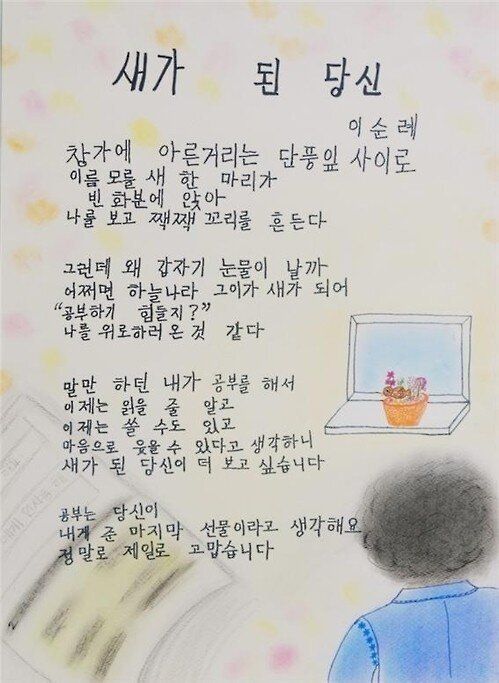 새가 된 당신
이순례
창가에 아른거리는 단풍잎 사이로
이름 모를 새 한 마리가
빈 화분에 앉아
나를 보고 짹짹 꼬리를 흔든다
그런데 왜 갑자기 눈물이 날까
어쩌면 하늘나라 그이가 새가 되어
"공부하기 힘들지?"
나를 위로하러 온 것 같다
말만 하던 내가 공부를 해서
이제는 읽을 줄 알고
이제는 쓸 수도 있고
마음으로 웃을 수 있다고 생각하니
새가 된 당신이 더 보고 싶습니다
공부는 당신이
내게 준 마지막 선물이라고 생각해요
정말로 제일로 고맙습니다